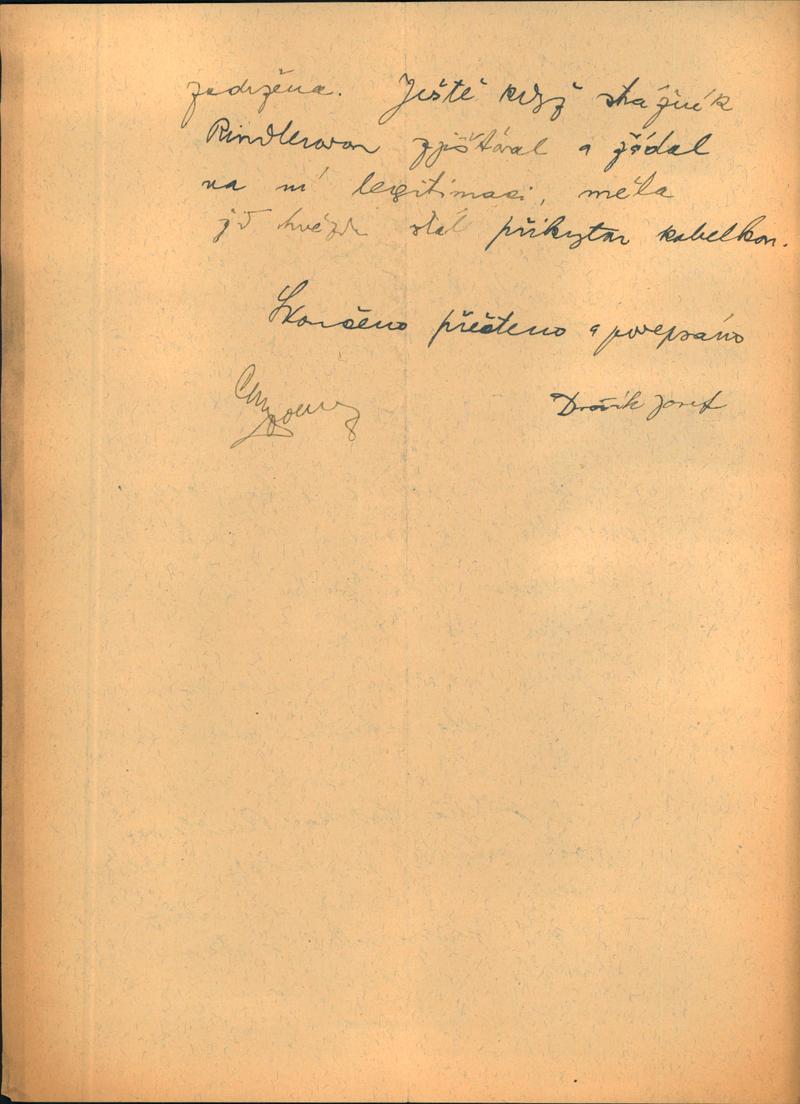 zadržena. Ještě když strážník
Rindlerovou zjišťoval a žádal
na ní legitimaci, měla
žid hvězdu stál přikytou kabelkou.
Skončeno přečteno a podepsáno
Dvořík Josef